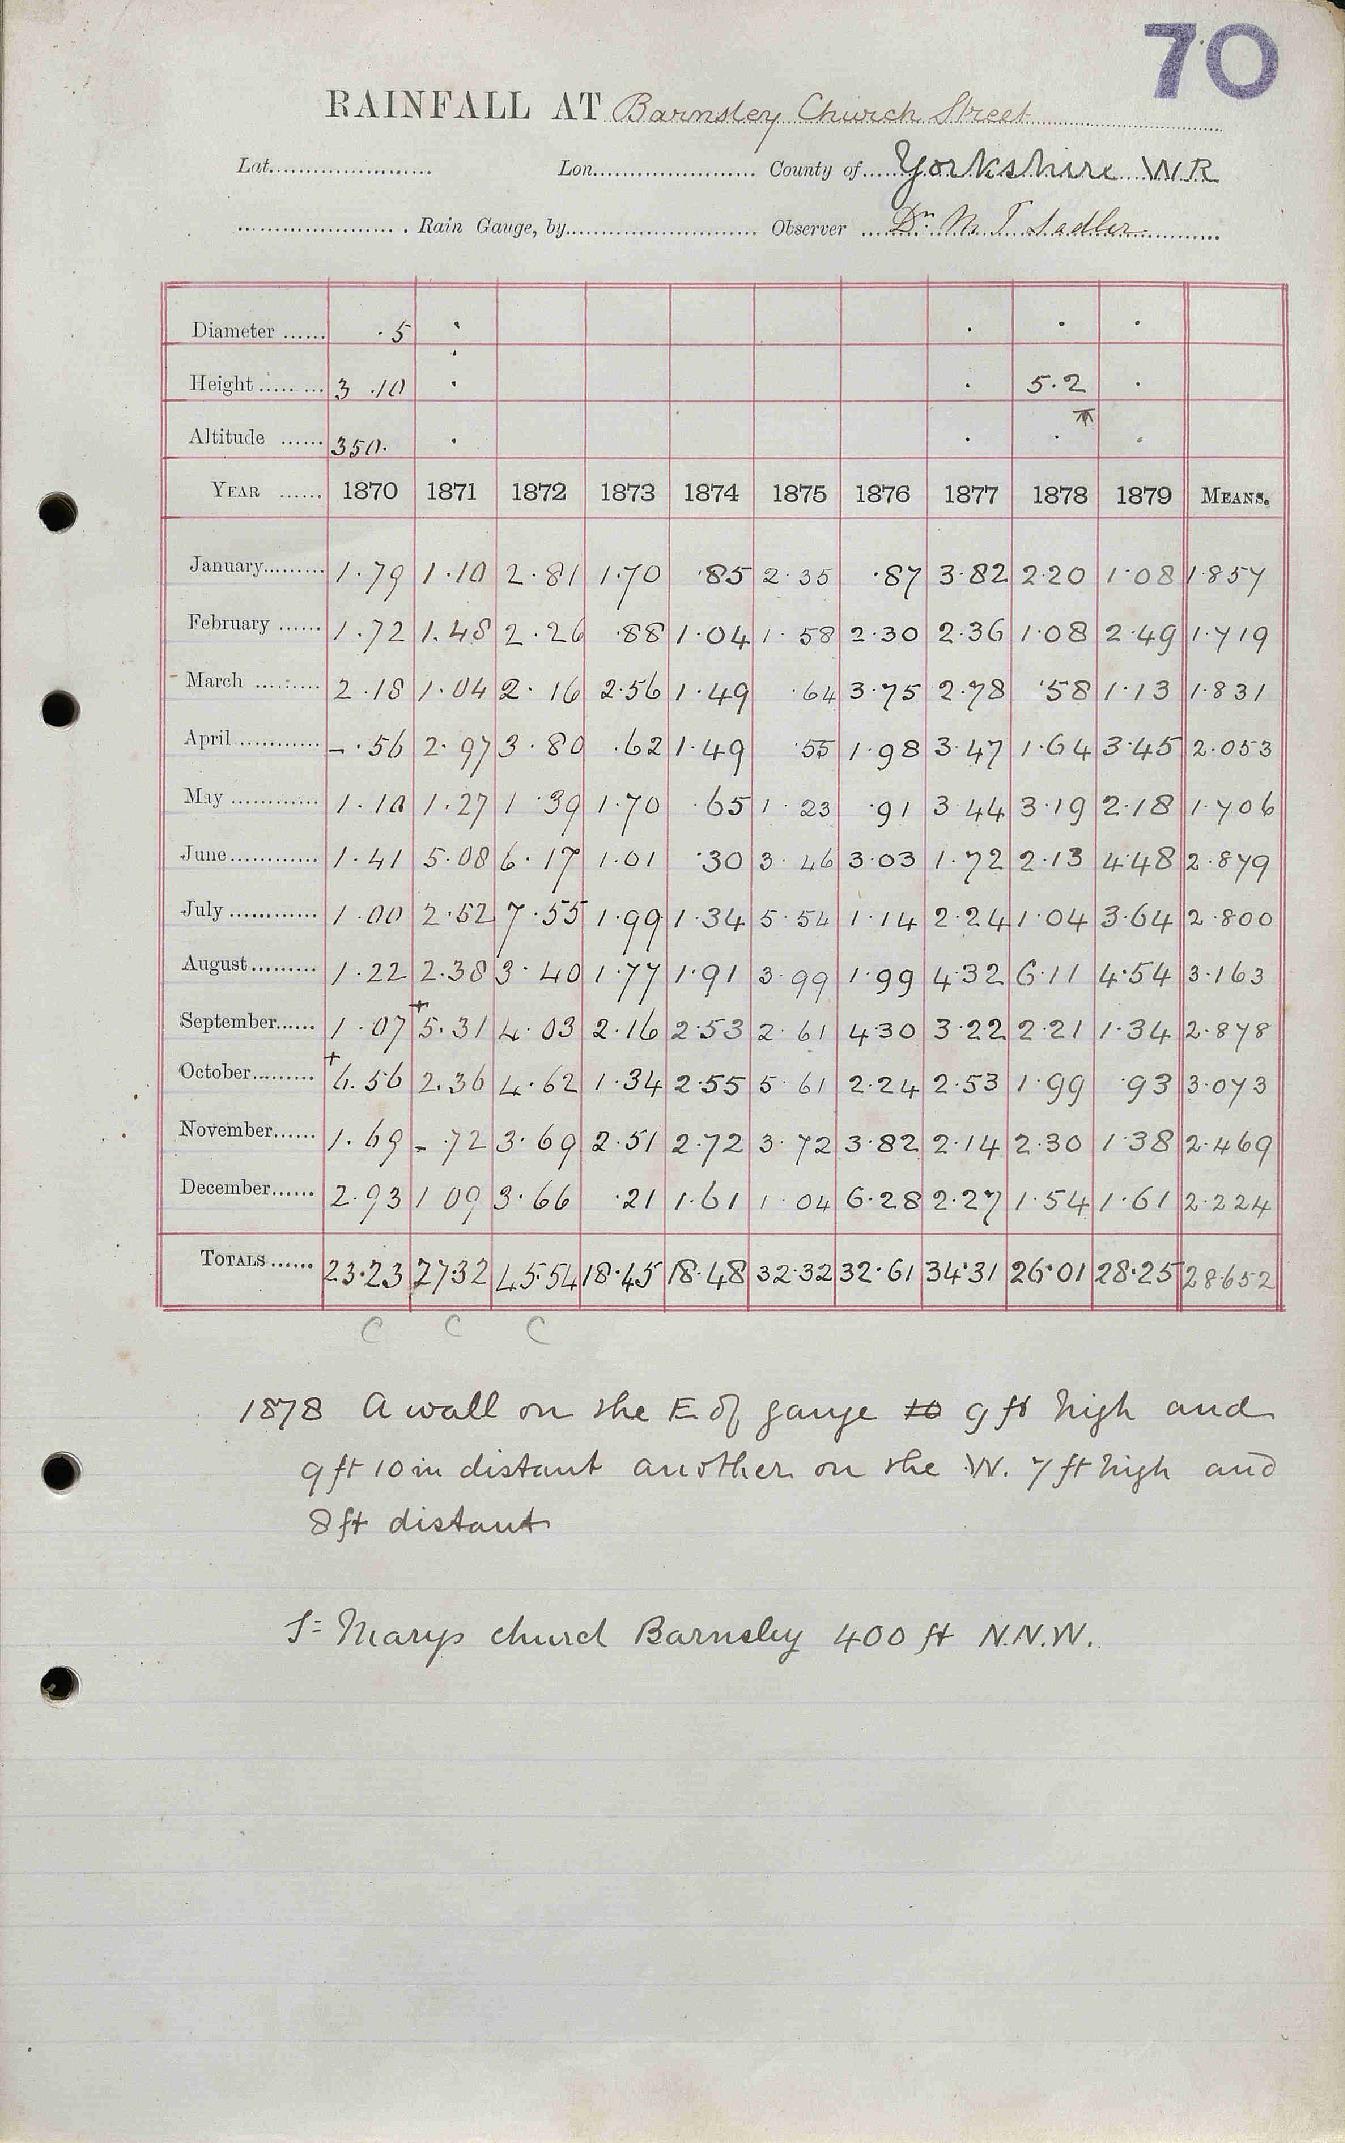 70
RAINFALL AT Barnsley Church Street
Lat. Lon. County of Yorkshire WR
Rain Gauge, by Observer Dr. M T Sadler
Diameter ·5 · · · ·
Height 3 .10 · · 5·2 ·
Altitude 350. · · · ·
YEAR 1870 1871 1872 1873 1874 1875 1876 1877 1878 1879 MEANS.
January 1·79 1·10 2·81 1·70 ·85 2·35 ·87 3·82 2·20 1·08 1·857
February 1·72 1.48 2·26 ·88 1·04 1·58 2·30 2·36 1·08 2·49 1·719
March 2·18 1·04 2·16 2·56 1·49 ·64 3·75 2·78 ·58 1·13 1·831
April –·56 2·97 3·80 ·62 1·49 ·55 1·98 3·47 1·64 3·45 2·053
May 1·10 1·27 1·39 1·70 ·65 1·23 ·91 3·44 3·19 2·18 1·706
June 1·41 5·08 6·17 1·01 ·30 3·46 3·03 1·72 2·13 4·48 2·879
July 1·00 2·52 7·55 1·99 1·34 5·54 1·14 2·24 1·04 3·64 2·800
August 1·22 2.38 3·40 1·77 1·91 3·99 1·99 4·32 6·11 4·54 3·163
September 1·07 +5.31 4·03 2·16 2·53 2·61 4·30 3·22 2·21 1·34 2·878
October +6.56 2.36 4·62 1·34 2·55 5·61 2·24 2·53 1·99 ·93 3·073
November 1.69 – ·72 3·69 2·51 2·72 3·72 3·82 2·14 2·30 1·38 2·469
December 2·93 1 09 3·66 ·21 1·61 1·04 6·28 2·27 1·54 1·61 2·224
TOTALS 23·23 27·32 45·54 18·45 18·48 32·32 32·61 34·31 26·01 28·25 28652
C C C
1878 A wall on the E of gauge 10 9 ft high and
9 ft 10 in distant another on the W. 7 ft high and
8 ft distant
St Marys church Barnsley 400 ft N.N.W.